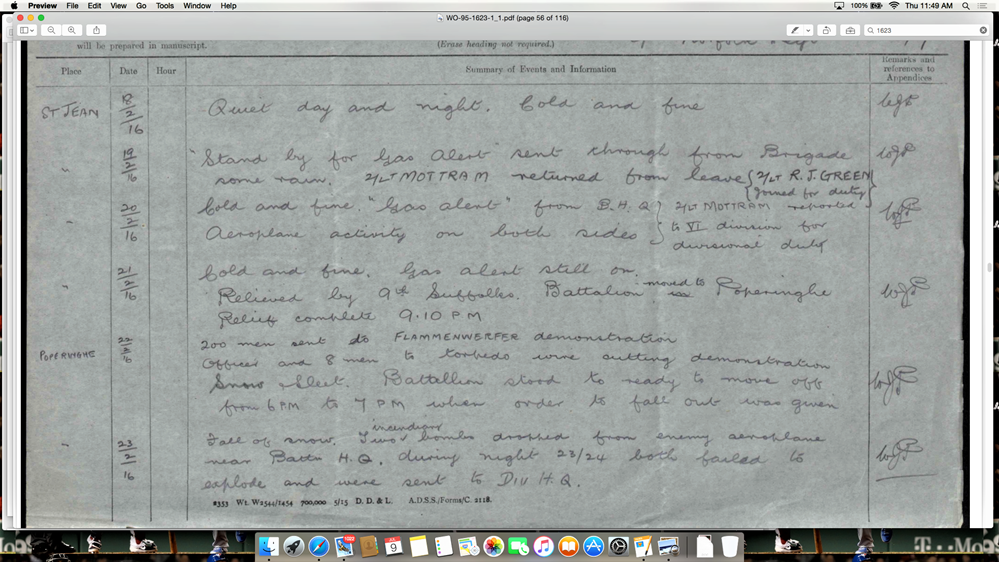 Preview File Edit View Go Tools Window Help
100% Thu 11:49 AM
WO-95-1623-1_1.pdf (page 56 of 116)
1623
will be prepared in manuscript.
(Erase heading not required.)
Place Date Hour Summary of Events and Information Remarks and references to Appendices
ST JEAN 18/2/16 Quiet day and night. Cold and fine
" 19/2/16 "Stand by for Gas Alert" sent through from Brigade
some rain. 2/LT MOTTRAM returned from leave {2/LT R.J. GREEN
joined for duty}
" 20/2/16 Cold and fine. "Gas alert" from B.H.Q } 2/LT MOTTRAM reported
Aeroplane activity on both sides } to VI division for
divisional duty
" 21/2/16 Cold and fine. Gas alert still on.
Relieved by 9th Suffolks. Battalion moved to Poperinghe
Relief complete 9.10 PM
POPERINGHE 22/2/16 200 men sent to FLAMMENWERFER demonstration
Officer and 8 men to torpedo wire cutting demonstration
Snow & Sleet. Battallion stood to ready to move off
from 6 PM to 7 PM when order to fall out was given
" 23/2/16 Fall of snow. Two incendiary bombs dropped from enemy aeroplane
near Battn H.Q. during night 23/24 both failed to
explode and were sent to Div H.Q.
2353 Wt. W2544/1454 700,000 5/15 D. D. & L. A.D.S.S./Forms/C. 2118.
APR
9
T Mo